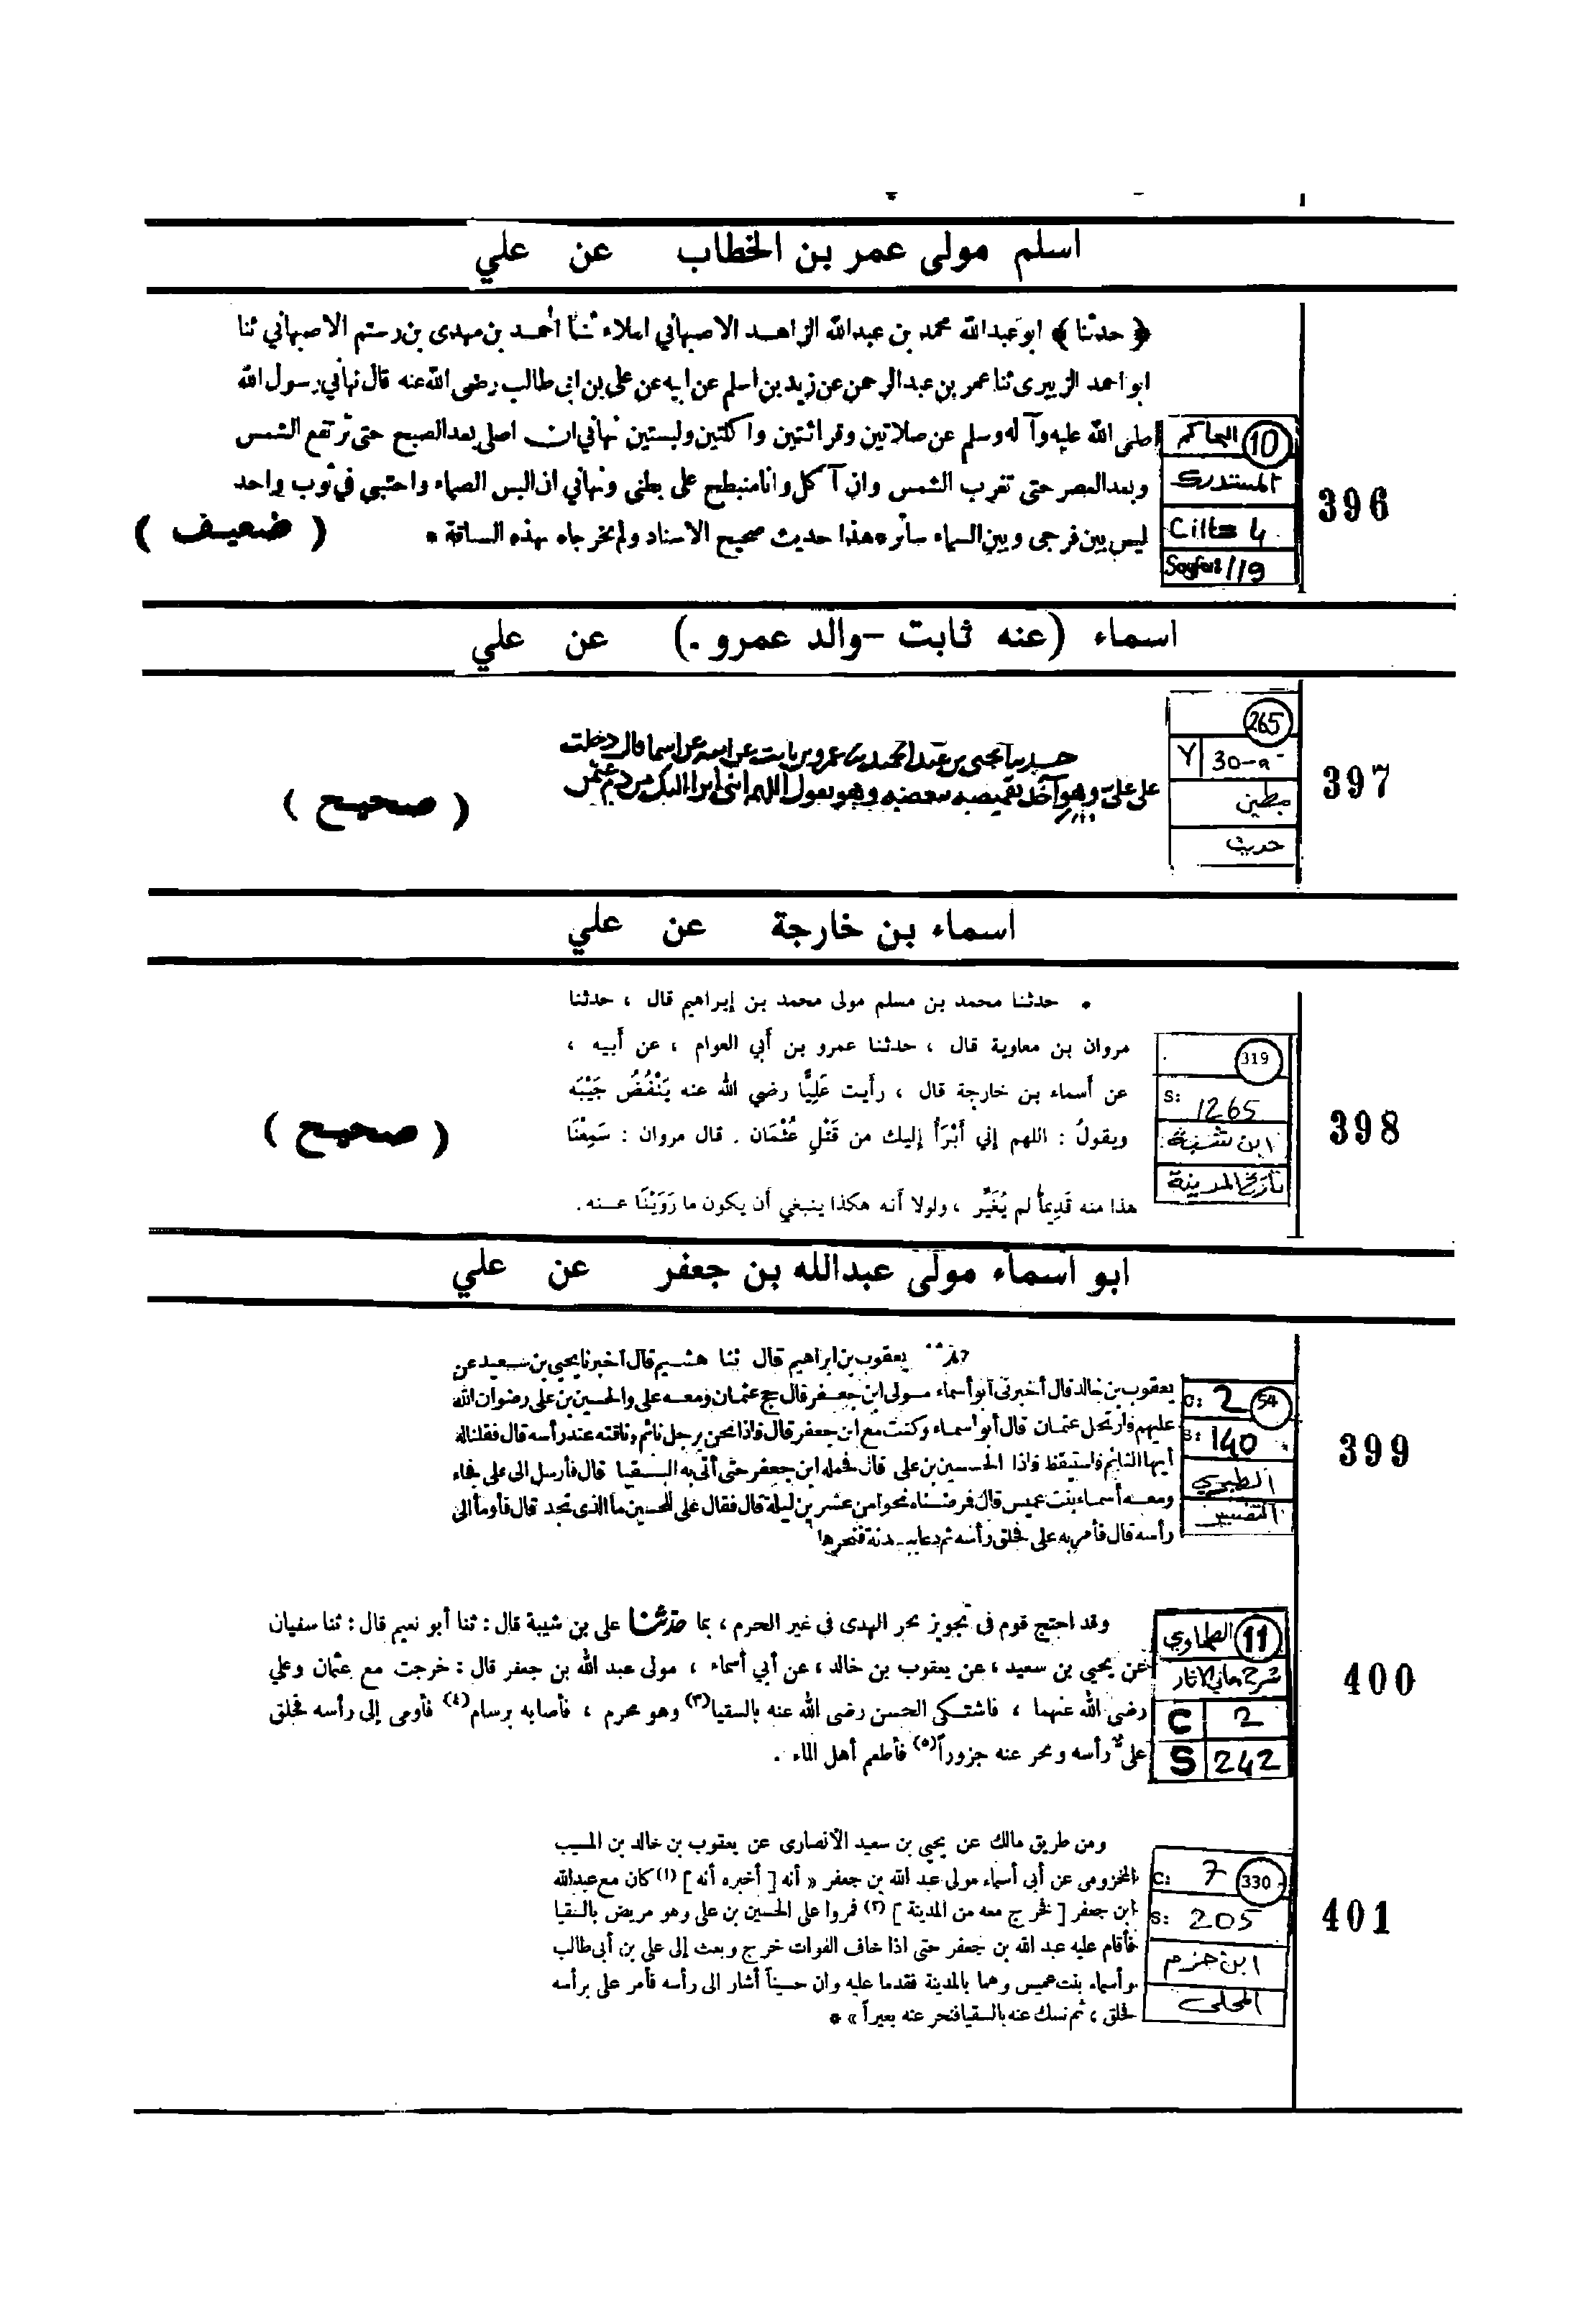 اسلم مولى عمر بن الخطاب عن علي
﴿ حدثنا ﴾ ابو عبدالله محمد بن عبدالله الزاهد الاصبهاني املاء ثنا أحمد بن مهدى بن رستم الاصبهاني ثنا
ابو احمد الزبيرى ثنا عمر بن عبدالرحمن عن زيد بن اسلم عن ابيه عن على بن ابى طالب رضى الله عنه قال نهاني رسول الله
صلى الله عليه وآله وسلم عن صلاتين وقرائتين واكلتين ولبستين نهاني ان اصلى بعد الصبح حتى ترتفع الشمس
وبعد العصر حتى تغرب الشمس وان آكل وانا منبطح على بطنى ونهاني ان البس الصماء واحتبي في ثوب واحد
ليس بين فرجى وبين السماء ساتر * هذا حديث صحيح الاسناد ولم يخرجاه بهذه السياقة *
( ضعيف )
10 الحاكم
المستدرك
Cilt: 4
Sayfa: 119
396
اسماء (عنه ثابت - والد عمرو .) عن علي
يحيى بن عبد الحميد عمرو بن ثابت عن ابيه عن اسما قال دخلت
على علي وهو آخذ بقميصه وهو يقول اللهم انى ابرا اليك من دم عثمن
( صحيح )
265
Y 30-a
مطين
حديث
397
اسماء بن خارجة عن علي
• حدثنا محمد بن مسلم مولى محمد بن إبراهيم قال ، حدثنا
مروان بن معاوية قال ، حدثنا عمرو بن أبي العوام ، عن أبيه ،
عن أسماء بن خارجة قال ، رأيت عَلِيًّا رضي الله عنه يَنْفُضُ جَيْبَه
ويقولُ : اللهم إني أَبْرَأُ إليك من قَتْلِ عُثْمَان . قال مروان : سَمِعْنَا
هذا منه قَدِيماً لم يُغَيَّر ، ولولا أنه هكذا ينبغي أن يكون ما رَوَيْنَا عنه .
( صحيح )
319
S: 1265
ابن شبة
تاريخ المدينة
398
ابو اسماء مولى عبدالله بن جعفر عن علي
يعقوب بن ابراهيم قال ثنا هشيم قال أخبرنا يحيى بن سعيد عن
يعقوب بن خالد قال أخبرنى أبو أسماء مولى ابن جعفر قال حج عثمان ومعه على والحسين بن على رضوان الله
عليهم فارتحل عثمان قال أبو أسماء وكنت مع ابن جعفر قال فاذا نحن برجل نائم وناقته عند رأسه قال فقلنا له
أيها النائم فاستيقظ فاذا الحسين بن على قال فحمله ابن جعفر حتى أتى به السقيا قال فأرسل الى على فجاء
ومعه أسماء بنت عميس قال فمرضناه نحوا من عشرين ليلة قال فقال على للحسين ما الذى تجد قال فأومأ الى
رأسه قال فأمر به على فحلق رأسه ثم دعا ببدنة فنحرها
54
C: 2
S: 140
الطبري
التفسير
399
وقد احتج قوم فى تجويز نحر الهدى فى غير الحرم ، بما حدثنا على بن شيبة قال : ثنا أبو نعيم قال : ثنا سفيان
عن يحيى بن سعيد ، عن يعقوب بن خالد ، عن أبي أسماء ، مولى عبد الله بن جعفر قال : خرجت مع عثمان وعلي
رضى الله عنهما ، فاشتكى الحسن رضى الله عنه بالسقيا(٣) وهو محرم ، فأصابه برسام(٤) فأومى إلى رأسه فحلق
على رأسه ونحر عنه جزوراً(٥) فأطعم أهل الماء .
11 الطحاوي
شرح معاني الاثار
C 2
S 242
400
ومن طريق مالك عن يحيى بن سعيد الأنصارى عن يعقوب بن خالد بن المسيب
المخزومى عن أبى أسماء مولى عبد الله بن جعفر « أنه [ أخبره أنه ](١) كان مع عبدالله
ابن جعفر [ فخرج معه من المدينة ](٢) فمروا على الحسين بن على وهو مريض بالسقيا
فأقام عليه عبد الله بن جعفر حتى اذا خاف الفوات خرج وبعث إلى علي بن أبى طالب
وأسماء بنت عميس وهما بالمدينة فقدما عليه وان حسيناً أشار الى رأسه فأمر على برأسه
فحلق ، ثم نسك عنه بالسقيا فنحر عنه بعيراً » *
330
C: 7
S: 205
ابن حزم
المحلى
401